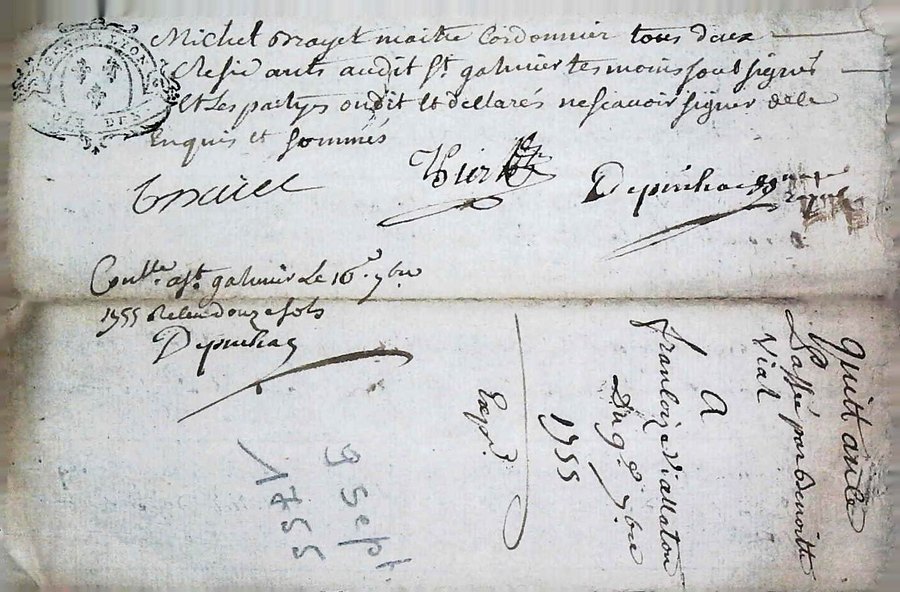 GEN DE LYON
Michel Brayet maitre Cordonnier tous deux
Residants audit St galmier tesmoins soubsignés
Et les partyes ondit et dellarés nescavoir signer de ce
Enquis et sommés
Depinhac
Conllé. a St. galmier Le 16e. 7bre
1755 Receu douze sols
Depinhac
Quittance
Passée par Benoitte
Vial
A
francoize Viallaton
Du 9e 7bre
1755
Exp.
9 sept.
1755